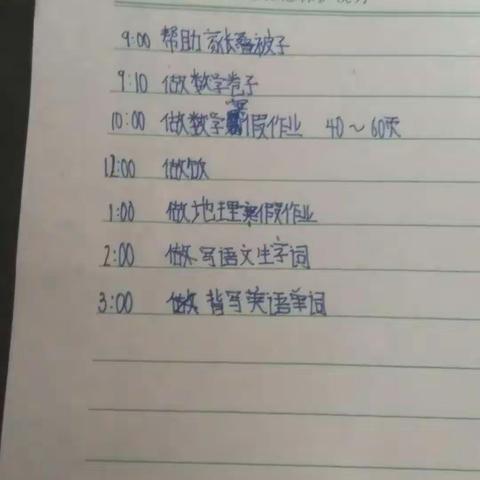 9:00 帮助家长叠被子
9:10 做数学卷子
10:00 做数学寒假作业 40～60页
12:00 做饭
1:00 做地理寒假作业
2:00 做写语文生字词
3:00 做背写英语单词